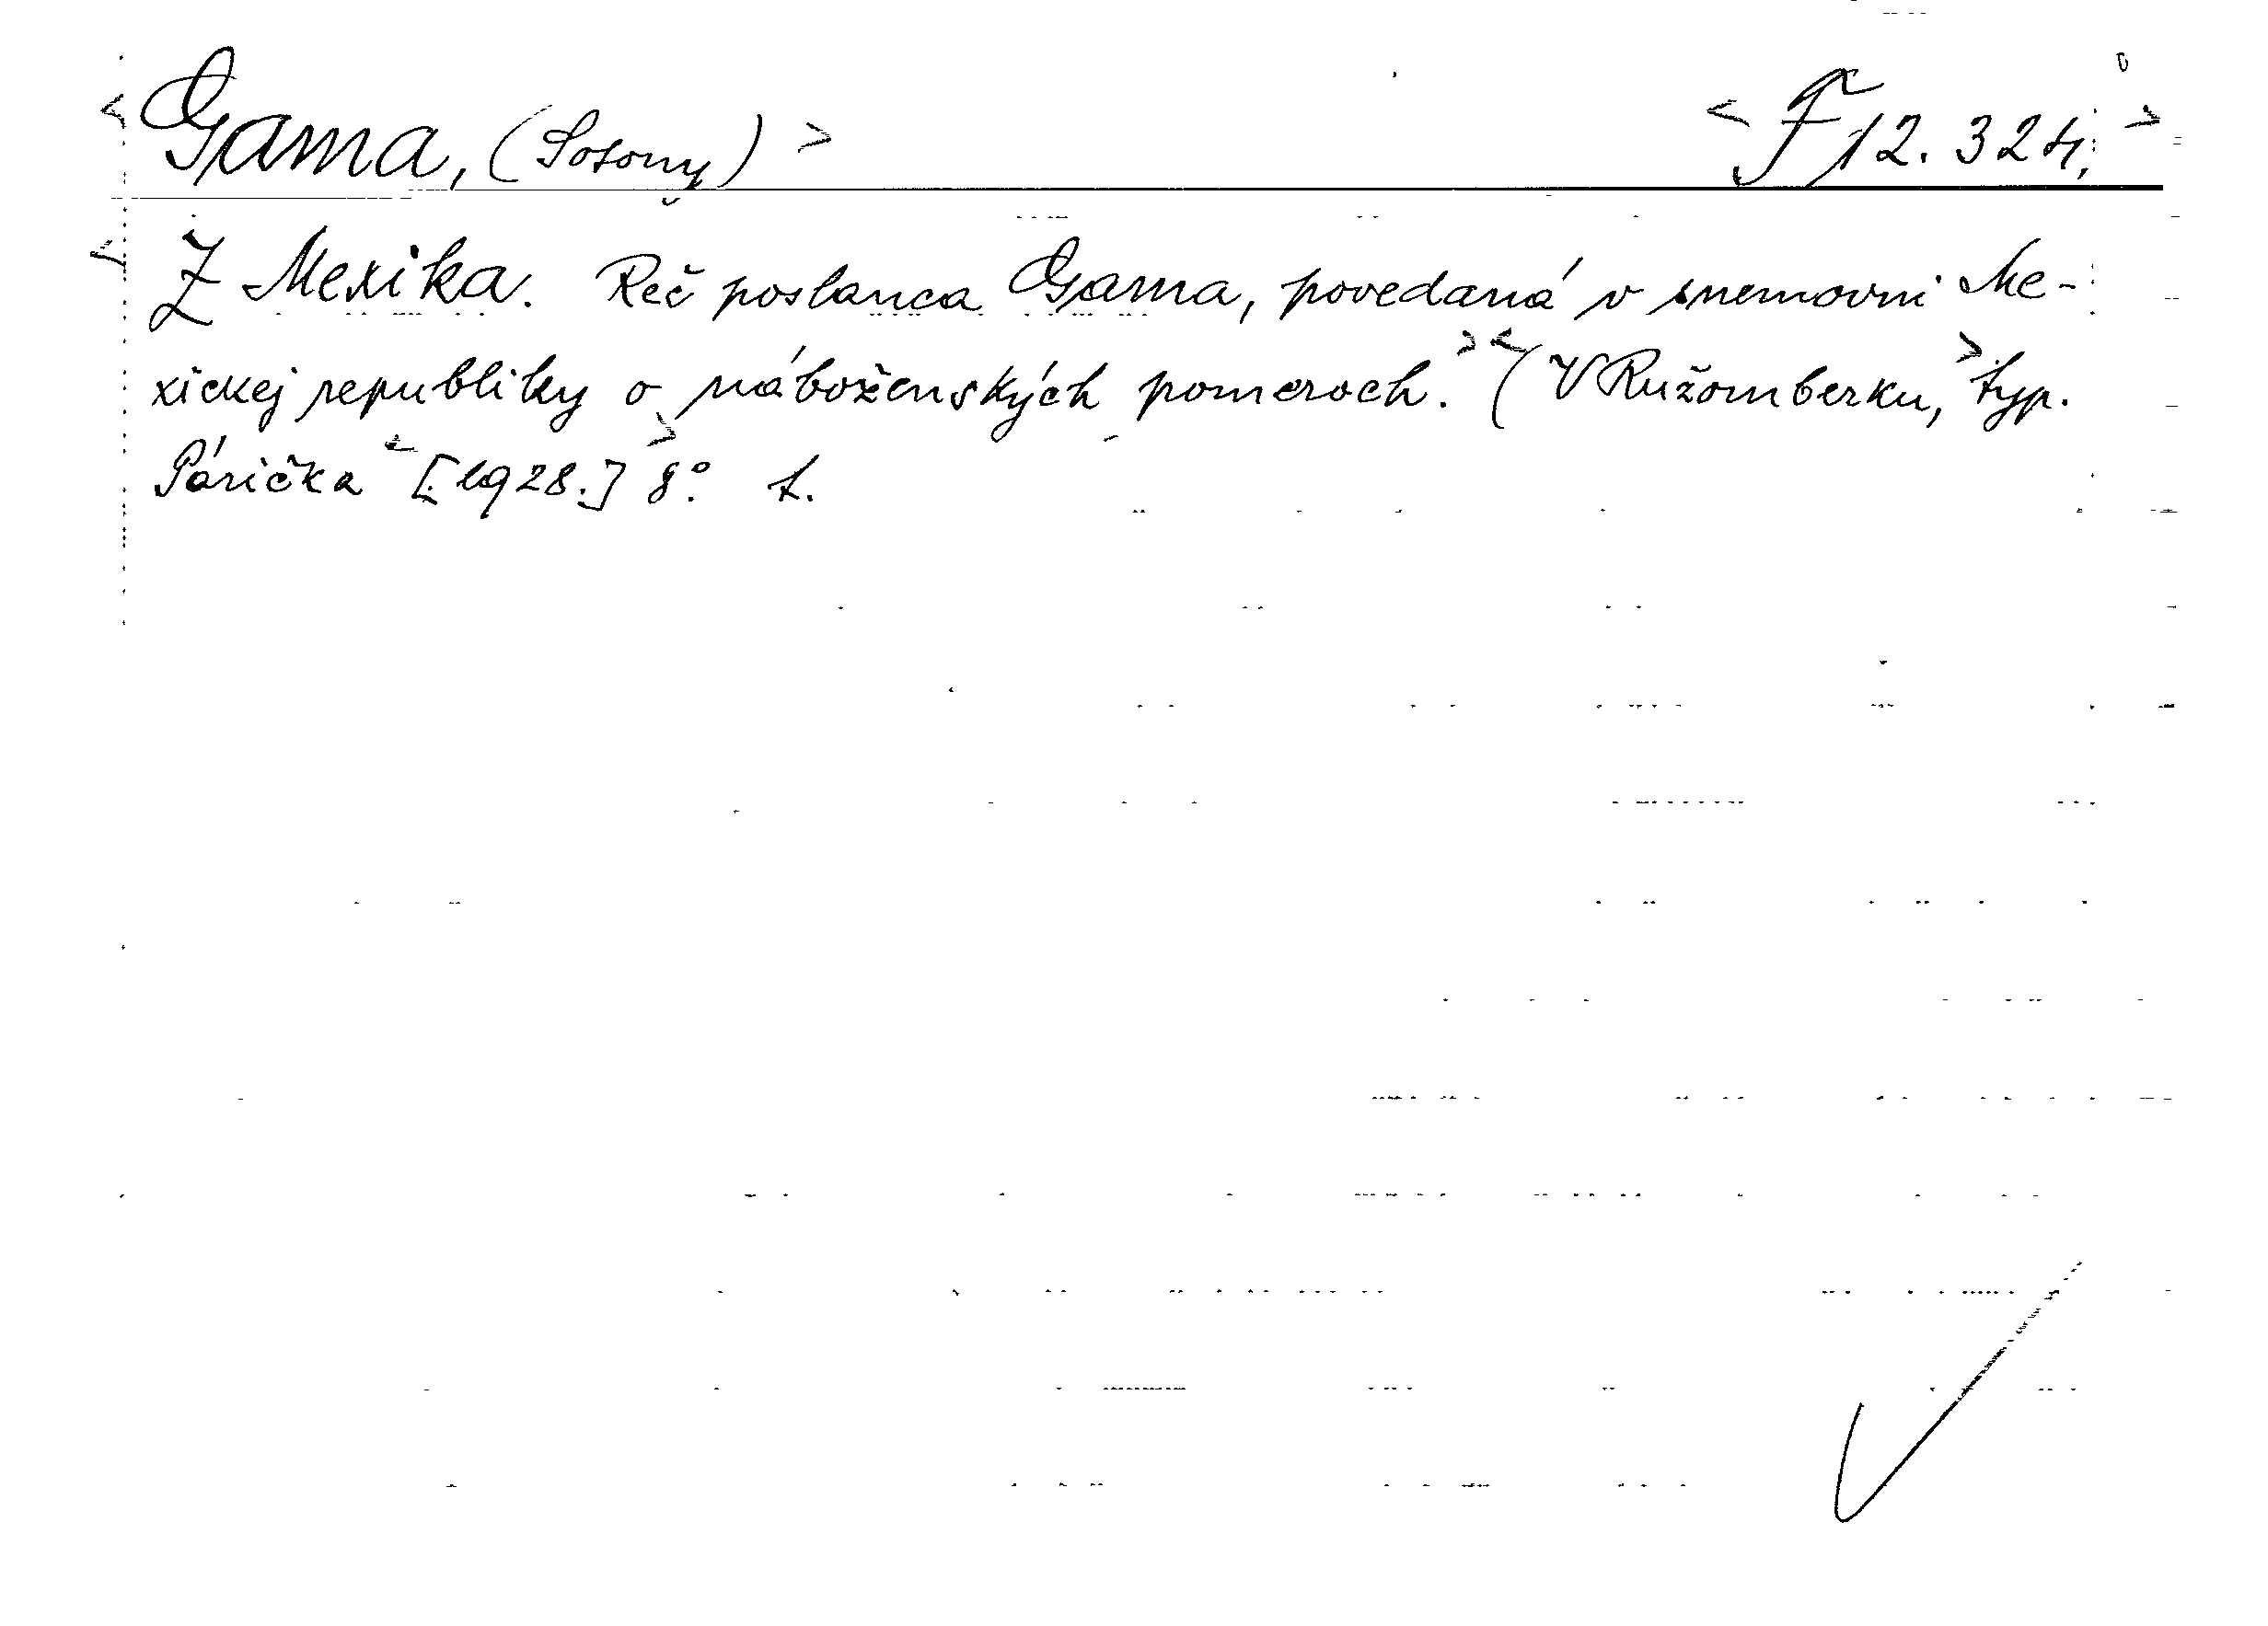 <Gama, (Sotony)> <F 12.324;>
<Z Mexika. Reč poslanca Gama, povedaná v snemovni Me-
xickej republiky o náboženských pomeroch.> <(V Ružomberku,> typ.
Párička <[1928.]> 8° t.